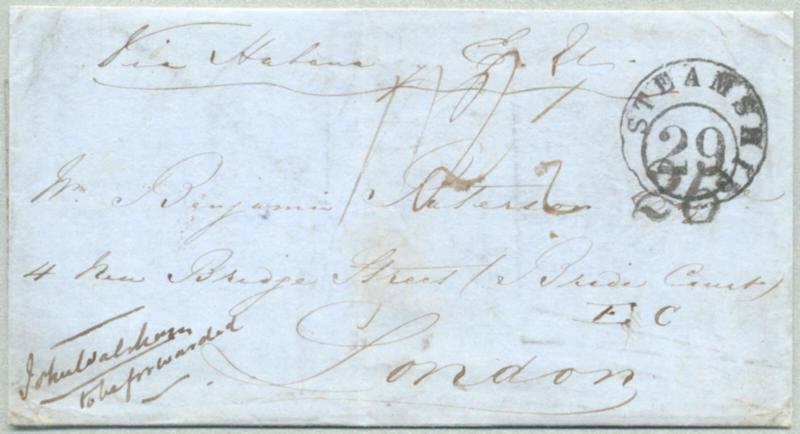 Via Habana y E. U.
STEAMSHIP
29
Mr Benjamin Paterson
4 New Bridge Street (Bride Court)
E. C
London
John Walsham
to be forwarded